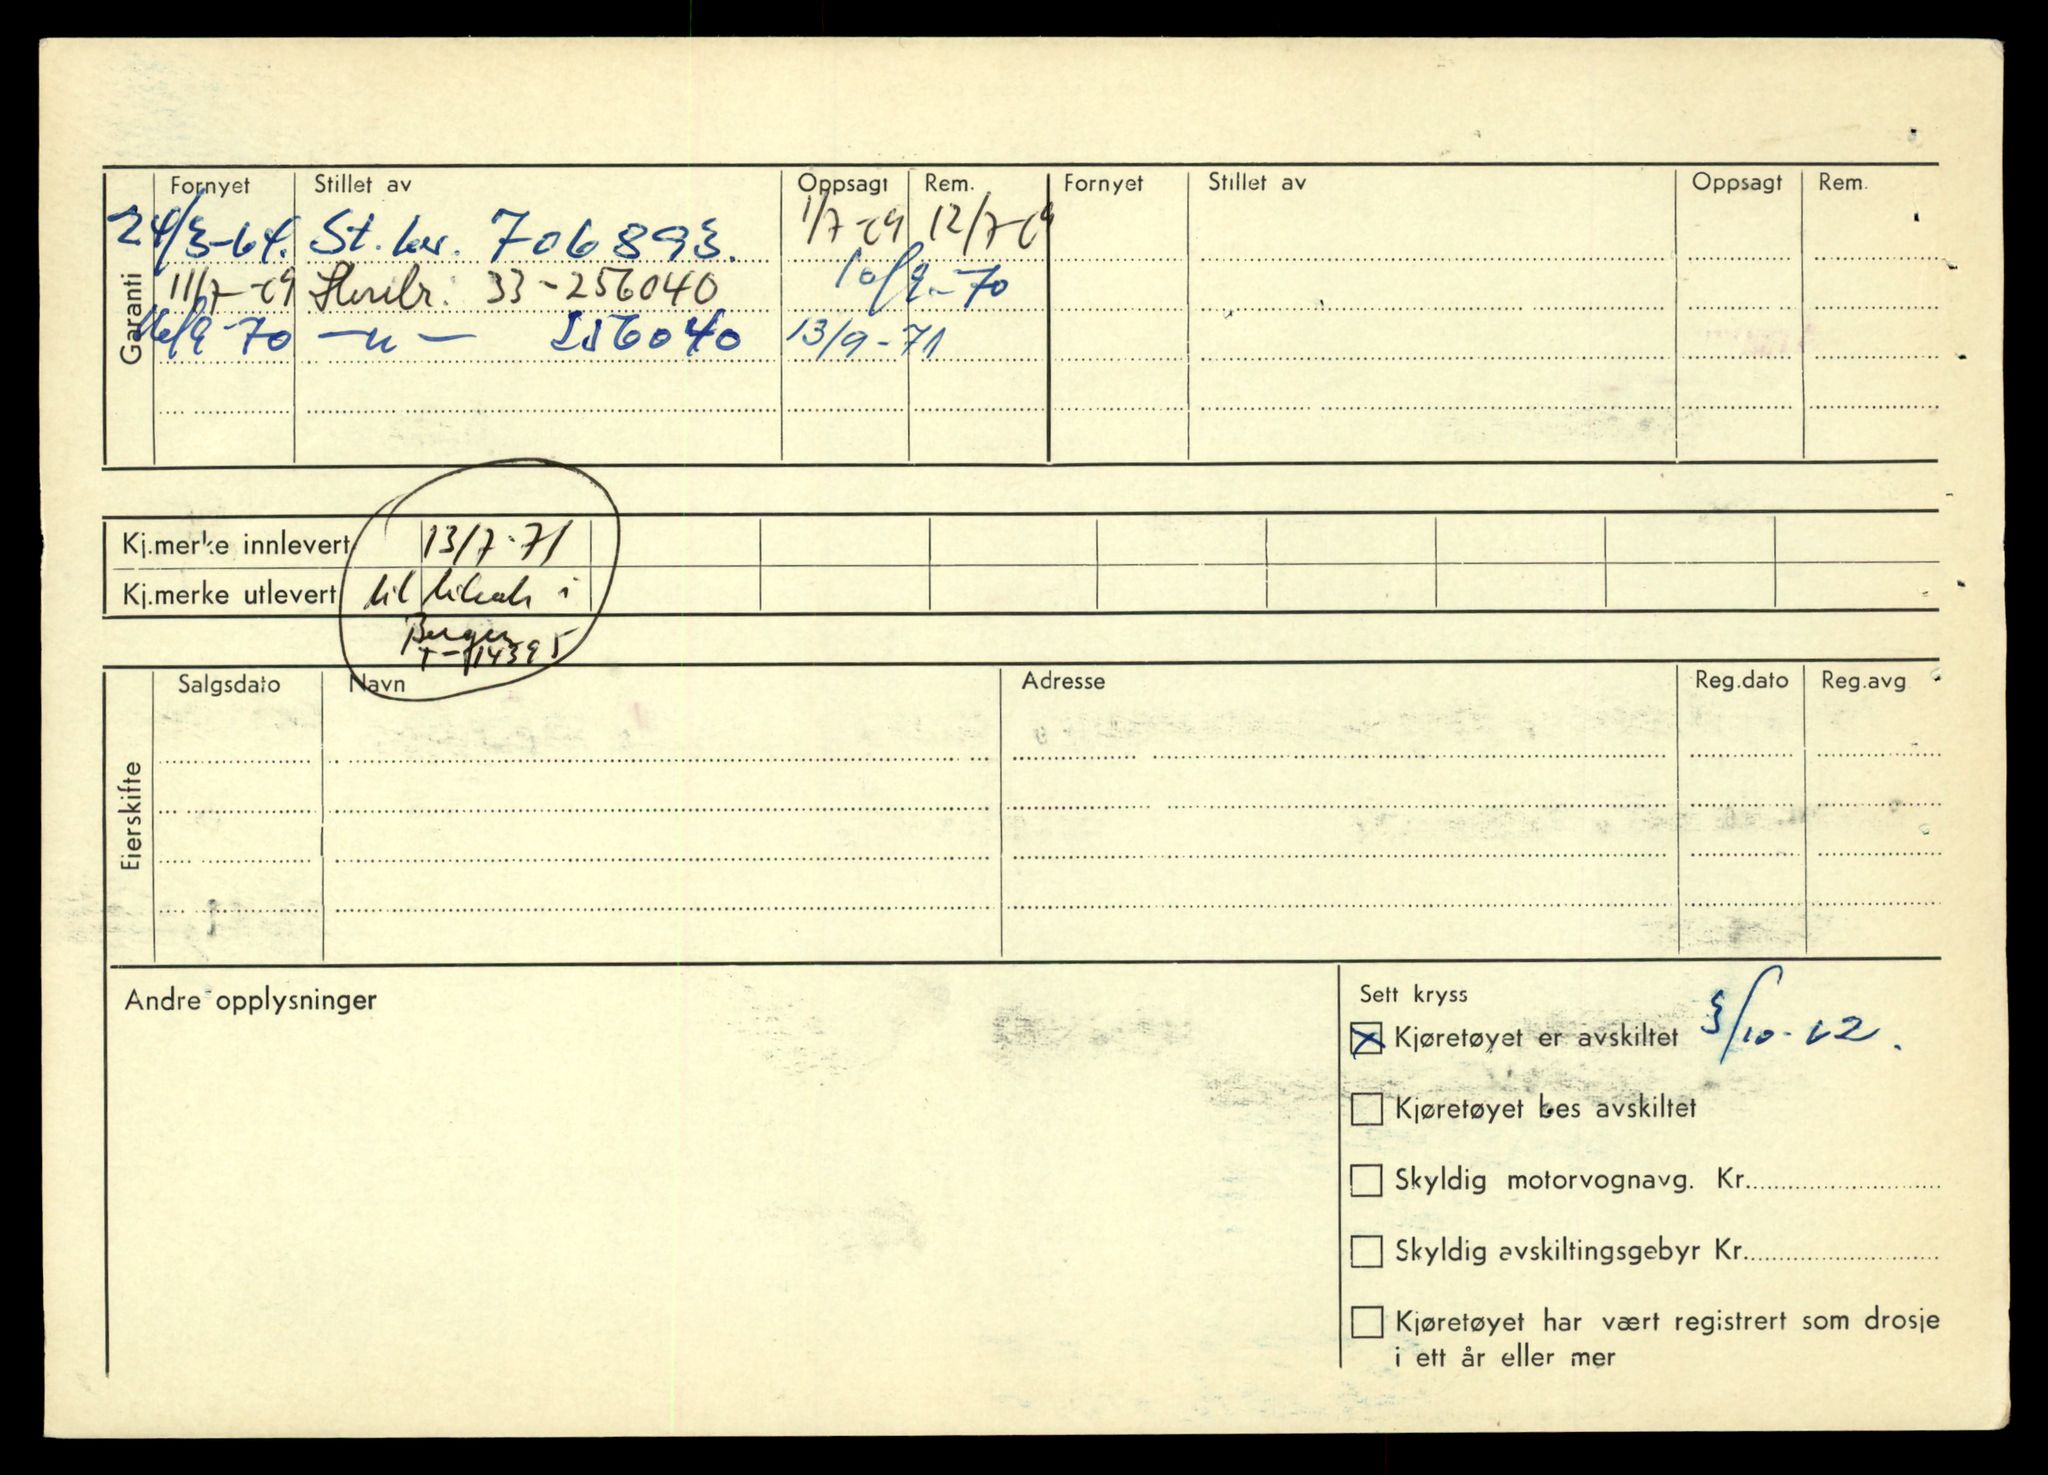 Fornyet Stillet av Oppsagt Rem. Fornyet Stillet av Oppsagt Rem.
Garanti
24/3-64. St. 706893. 1/7-69 12/7-69
11/7-69 33-256040 10/9-70
16/9-70 —"— 256040 13/9-71
Kj.merke innlevert 13/7-71
Kj.merke utlevert til i
Bergen
T-14395
Eierskifte
Salgsdato Navn Adresse Reg.dato Reg.avg
Andre opplysninger
Sett kryss
Kjøretøyet er avskiltet 3/10-62.
Kjøretøyet bes avskiltet
Skyldig motorvognavg. Kr.
Skyldig avskiltingsgebyr Kr.
Kjøretøyet har vært registrert som drosje
i ett år eller mer